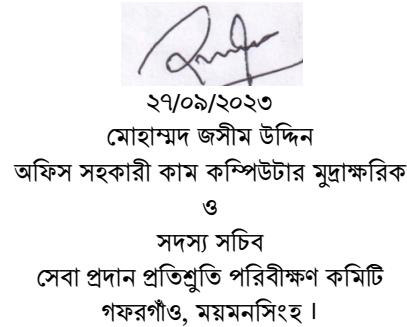 ২৭/০৯/২০২৩
মোহাম্মদ জসীম উদ্দিন
অফিস সহকারী কাম কম্পিউটার মুদ্রাক্ষরিক
ও
সদস্য সচিব
সেবা প্রদান প্রতিশ্রুতি পরিবীক্ষণ কমিটি
গফরগাঁও, ময়মনসিংহ।